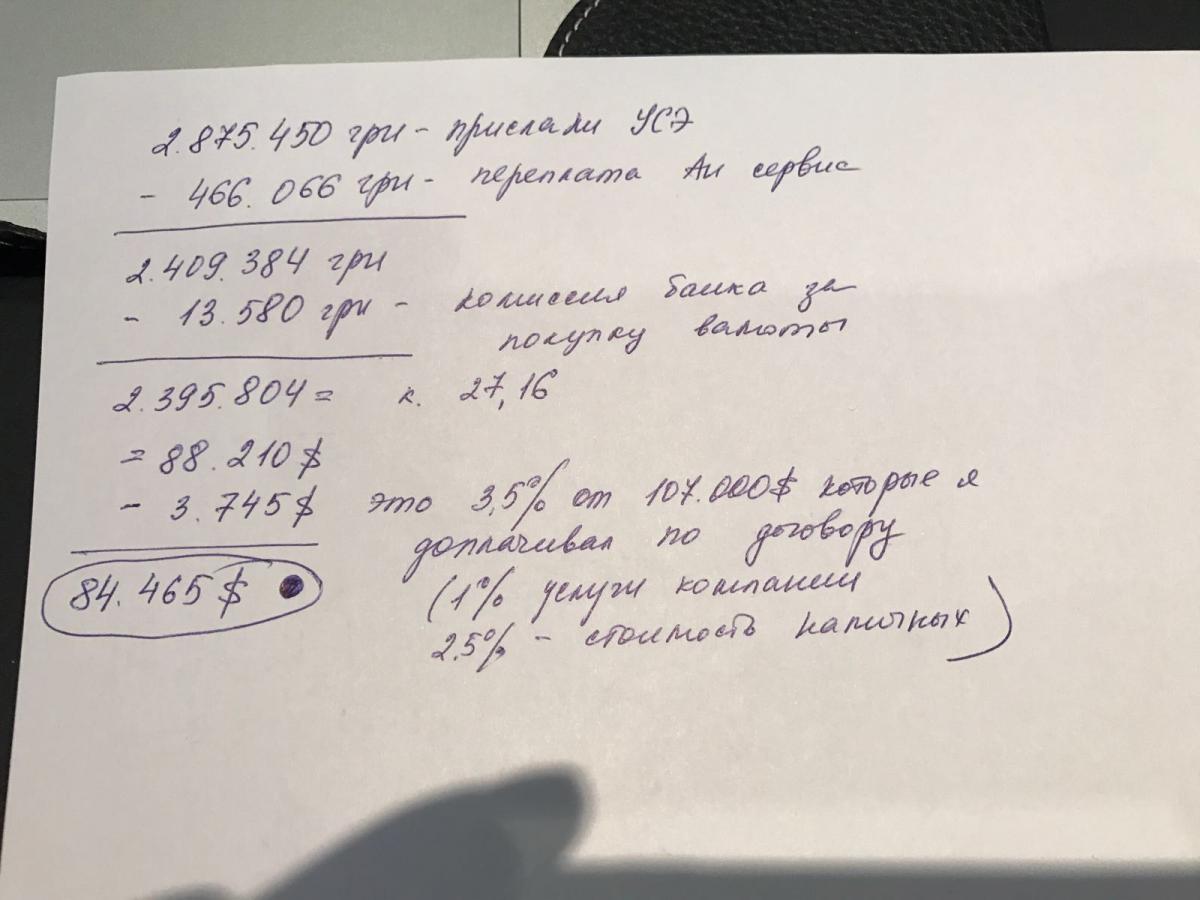 2.875.450 грн - прислали УСЭ
- 466.066 грн - переплата Аи сервис
2.409.384 грн
- 13.580 грн - комиссия банка за
покупку валюты
2.395.804 = к. 27,16
= 88.210 $
- 3.745 $ это 3,5% от 107.000$ которые я
доплачивал по договору
84.465 $ (1% услуги компании
2,5% - стоимость наличных)